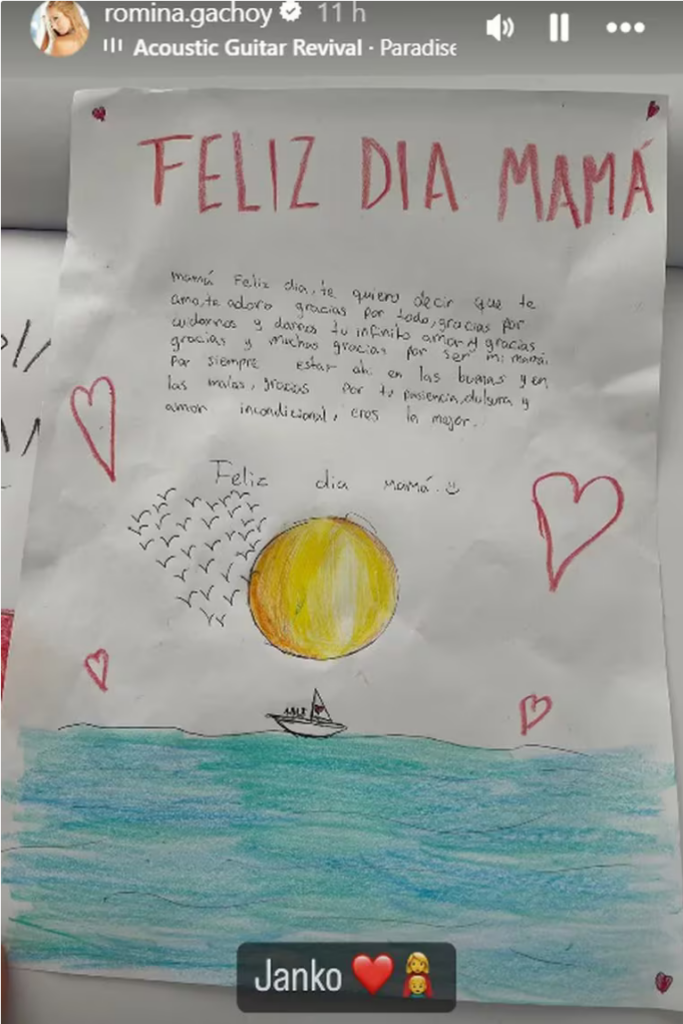 romina.gachoy 11 h
Acoustic Guitar Revival · Paradise
FELIZ DIA MAMÁ
mamá Feliz dia, te quiero decir que te
amo, te adoro gracias por todo, gracias por
cuidarnos y darnos tu infinito amor y gracias
gracias y muchas gracias por ser mi mamá.
Por siempre estar ahi en las buenas y en
las malas, gracias por tu pasiencia, dulsura y
amor incondicional, eres la mejor.
Feliz dia mamá.
Janko